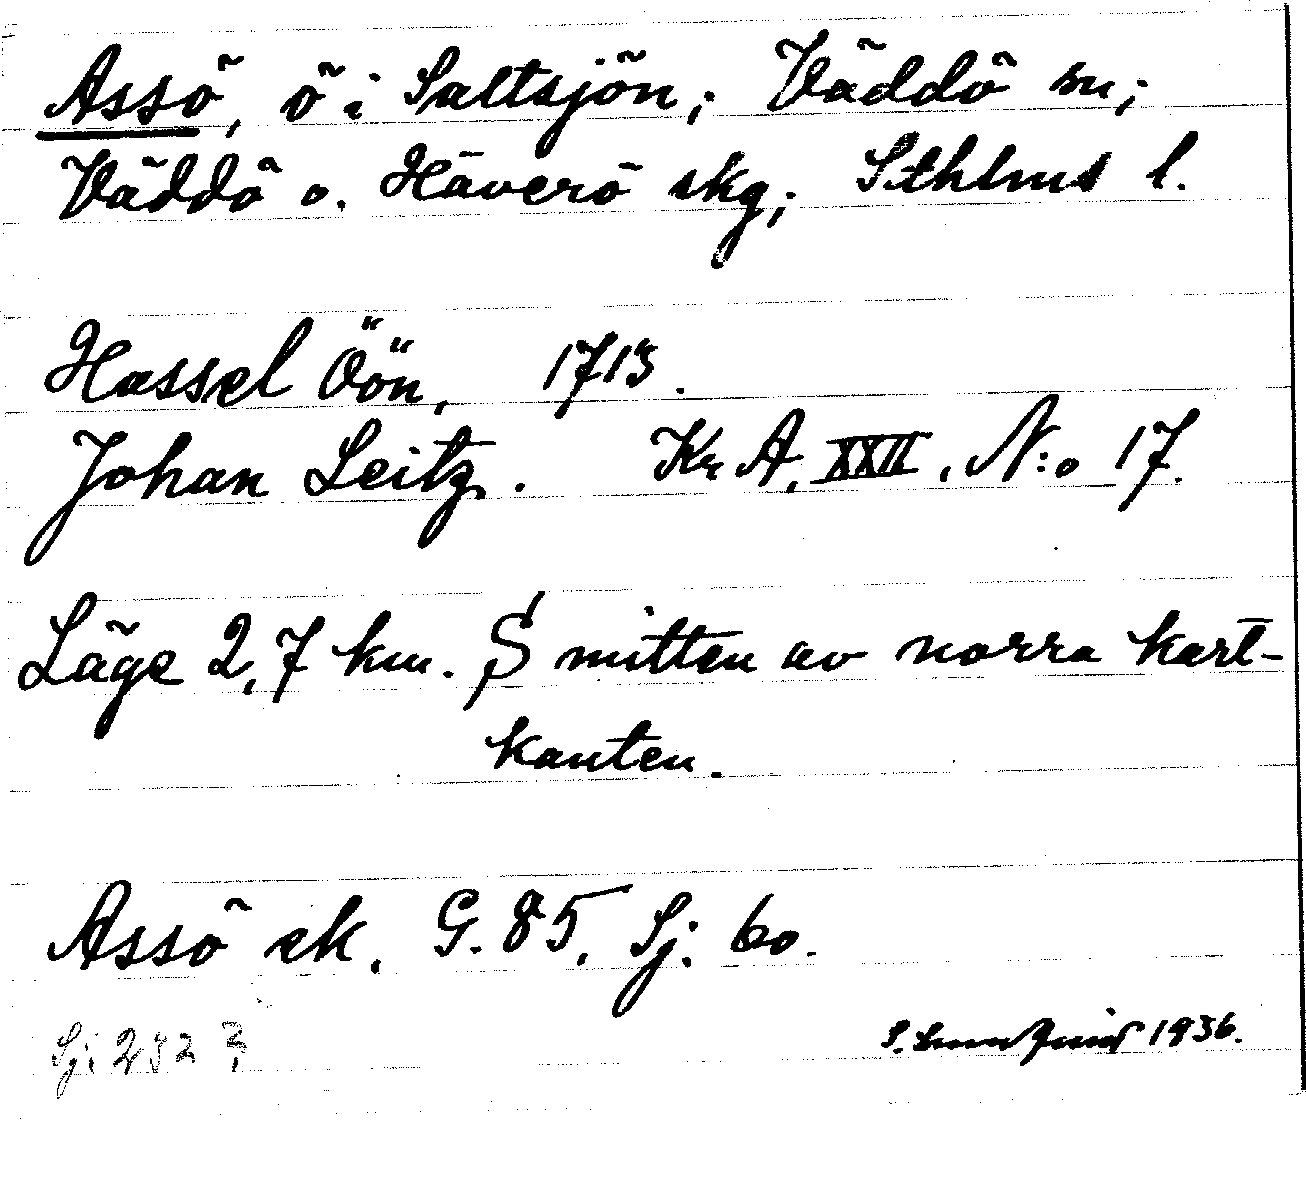 Assö, ö i Saltsjön; Väddö sn;
Väddö o. Häverö skg; Sthlms l.
Hassel Öön, 1713.
Johan Leitz. Kr A, XXII, N:o 17.
Läge 2,7 km. S mitten av norra kart-
kanten.
Assö ek. G. 85, Sj: 60.
Sj: 232
1936.